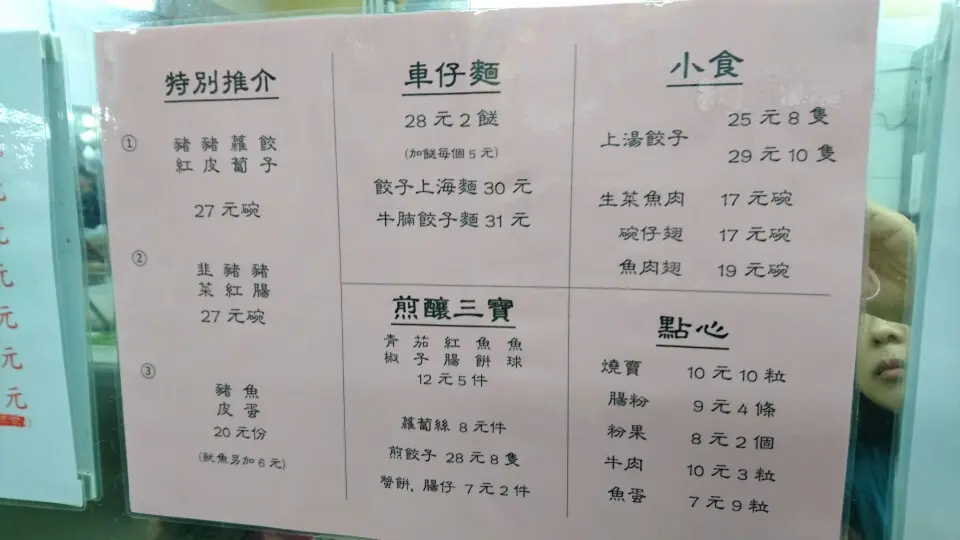 特別推介
①
豬 豬 蘿 餃
紅 皮 蔔 子
27 元碗
②
韭 豬 豬
菜 紅 腸
27 元碗
③
豬 魚
皮 蛋
20 元份
(魷魚另加 6 元)
車仔麵
28 元 2 餸
(加餸每個 5 元)
餃子上海麵 30 元
牛腩餃子麵 31 元
煎釀三寶
青 茄 紅 魚 魚
椒 子 腸 餅 球
12 元 5 件
蘿蔔絲 8 元件
煎餃子 28 元 8 隻
蟹餅, 腸仔 7 元 2 件
小食
上湯餃子
25 元 8 隻
29 元 10 隻
生菜魚肉 17 元碗
碗仔翅 17 元碗
魚肉翅 19 元碗
點心
燒賣 10 元 10 粒
腸粉 9 元 4 條
粉果 8 元 2 個
牛肉 10 元 3 粒
魚蛋 7 元 9 粒
元
元
元
元
元
元